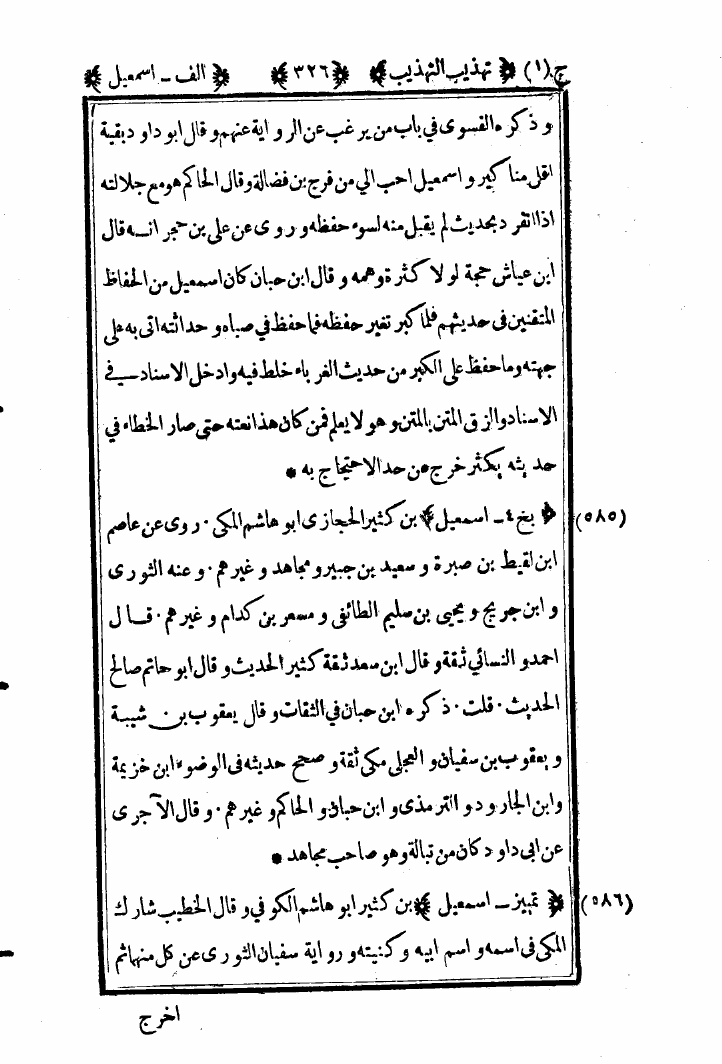 ج (١) ﴿ تهذيب التهذيب ﴾ ﴿ ٣٢٦ ﴾ ﴿ الف ـ اسمعيل ﴾
و ذكره الفسوى في باب من يرغب عن الرواية عنهم و قال ابو داود بقية
اقل مناكير و اسمعيل احب الي من فرج بن فضالة و قال الحاكم هو مع جلالته
اذا انفرد بحديث لم يقبل منه لسوء حفظه و روى عن علي بن حجر انه قال
ابن عياش حجة لو لا كثرة وهمه و قال ابن حبان كان اسمعيل من الحفاظ
المتقنين في حديثهم فلما كبر تغير حفظه فما حفظ في صباه و حداثته اتى به على
جهته و ما حفظ على الكبر من حديث الغرباء خلط فيه و ادخل الاسناد في
الاسناد و الزق المتن بالمتن و هو لا يعلم فمن كان هذا نعته حتى صار الخطاء في
حديثه يكثر خرج عن حد الاحتجاج به *
(٥٨٥) ﴿ بخ ٤ ـ اسمعيل ﴾ بن كثير الحجازى ابو هاشم المكى ٠ روى عن عاصم
ابن لقيط بن صبرة و سعيد بن جبير و مجاهد و غيرهم ٠ و عنه الثورى
و ابن جريج و يحيى بن سليم الطائفى و مسعر بن كدام و غيرهم ٠ قال
احمد و النسائي ثقة و قال ابن سعد ثقة كثير الحديث و قال ابو حاتم صالح
الحديث ٠ قلت ٠ ذكره ابن حبان في الثقات و قال يعقوب بن شيبة
و يعقوب بن سفيان و العجلى مكى ثقة و صحح حديثه فى الوضوء ابن خزيمة
و ابن الجارود و الترمذى و ابن حبان و الحاكم و غيرهم ٠ و قال الآجرى
عن ابى داود كان من تبالة و هو صاحب مجاهد *
(٥٨٦) ﴿ تمييز ـ اسمعيل ﴾ بن كثير ابو هاشم الكوفي و قال الخطيب شارك
المكى فى اسمه و اسم ابيه و كنيته و رواية سفيان الثورى عن كل منهما ثم
اخرج